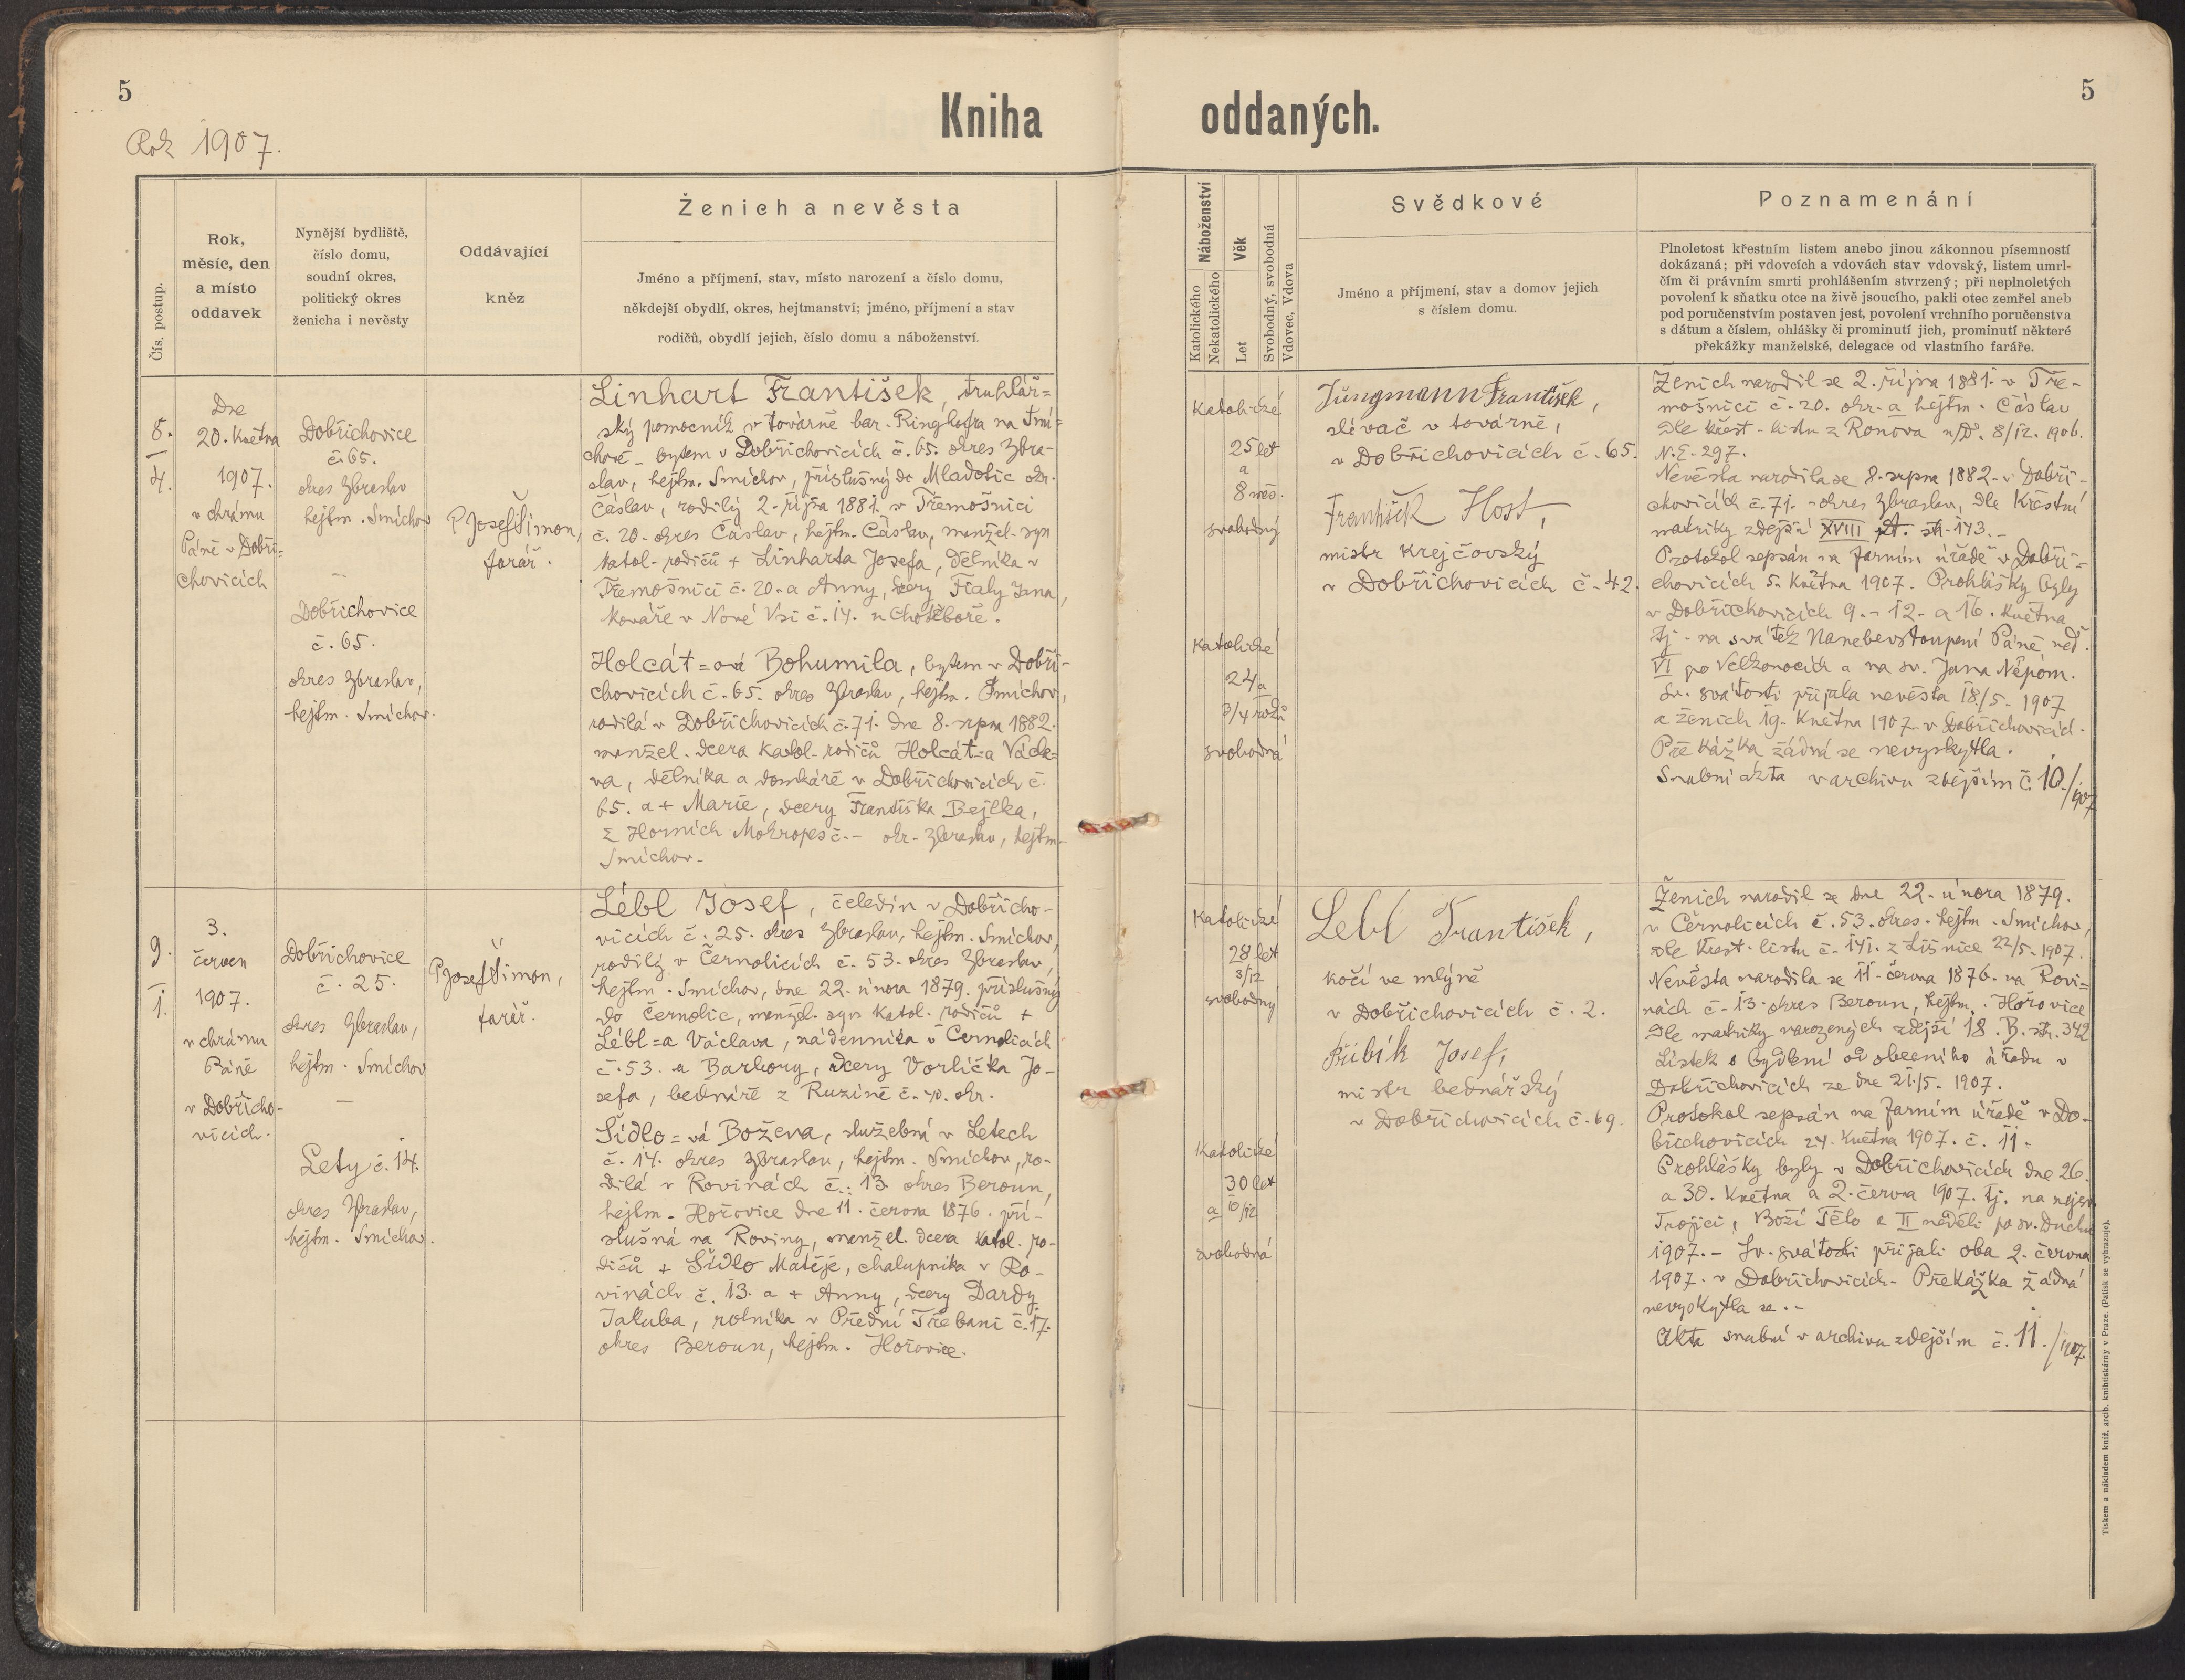 5
Kniha
oddaných.
5
Rok 1907.
Čís. postup.
Rok,
měsíc, den
a místo
oddavek
Nynější bydliště,
číslo domu,
soudní okres,
politický okres
ženicha i nevěsty
Oddávající
kněz
Ženich a nevěsta
Jméno a příjmení, stav, místo narození a číslo domu,
někdejší obydlí, okres, hejtmanství; jméno, příjmení a stav
rodičů, obydlí jejich, číslo domu a náboženství.
Náboženství
Katolického
Nekatolického
Věk
Let
Svobodný, svobodná
Vdovec, Vdova
Svědkové
Jméno a příjmení, stav a domov jejich
s číslem domu.
Poznamenání
Plnoletost křestním listem anebo jinou zákonnou písemností
dokázaná; při vdovcích a vdovách stav vdovský, listem umrl-
čím či právním smrti prohlášením stvrzený; při neplnoletých
povolení k sňatku otce na živě jsoucího, pakli otec zemřel aneb
pod poručenstvím postaven jest, povolení vrchního poručenstva
s dátum a číslem, ohlášky či prominutí jich, prominutí některé
překážky manželské, delegace od vlastního faráře.
8.
4.
Dne
20. Května
1907.
v chrámu
Páně v Dobři=
chovicích
Dobřichovice
č. 65.
okres Zbraslav
hejtm. Smíchov
—
Dobřichovice
č. 65.
okres Zbraslav,
hejtm. Smíchov.
P Josef Šimon,
farář.
Linhart František, truhlář=
ský pomocník v továrně bar. Ringhofra na Smí=
chově - bytem v Dobřichovicích č. 65. okres Zbra-
slav, hejtm. Smíchov, příslušný do Mladotic okr.
Čáslav, rodilý 2. října 1881. v Třemošnici
č. 20. okres Čáslav, hejtm. Čáslav, manžel. syn
katol. rodičů + Linharta Josefa, dělníka v
Třemošnici č. 20. a Anny, dcery Fialy Jana,
kováře v Nové Vsi č. 14. u Chotěboře.
Holcát=ová Bohumila, bytem v Dobři-
chovicích č. 65. okres Zbraslav, hejtm. Smíchov,
rodilá v Dobřichovicích č. 71. dne 8. srpna 1882.
manžel. dcera katol. rodičů Holcát=a Václa=
va, dělníka a domkáře v Dobřichovicích č.
65. a + Marie, dcery Františka Bejčka,
z Horních Mokropes č. - okr. Zbraslav, hejtm.
Smíchov.
Katolické
25 let
a
8 měs.
svobodný
Katolické
24 a
3/4 roků
svobodná
Jungmann František,
slévač v továrně,
v Dobřichovicích č. 65.
František Host,
mistr krejčovský
v Dobřichovicích č. 42.
Ženich narodil se 2. října 1881. v Tře-
mošnici č. 20. okr. a hejtm. Čáslav
dle křest. listu z Ronova n/D. 8/12. 1906.
N.E. 297.
Nevěsta narodila se 8. srpna 1882. v Dobři-
chovicích č. 71. okres Zbraslav, dle Křestní
matriky zdejší XVIII A. str. 143.-
Protokol sepsán na farním úřadě v Dobři=
chovicích 5. Května 1907. Prohlášky byly
v Dobřichovicích 9. - 12. a 16. května
tj. na svátek Nanebevstoupení Páně, ned.
VI po Velkonocích a na sv. Jana Nepom.
Sv. svátosti přijala nevěsta 18./5. 1907
a ženich 19. Května 1907 v Dobřichovicích.
Překážka žádná se nevyskytla.
Snubní akta v archivu zdejším č. 10./1907
9.
1.
3.
červen
1907.
v chrámu
Páně
v Dobřicho-
vicích.
Dobřichovice
č. 25.
okres Zbraslav,
hejtm. Smíchov
—
Lety č. 14.
okres Zbraslav,
hejtm. Smíchov.
P Josef Šimon,
farář.
Lébl Josef, čeledín v Dobřicho-
vicích č. 25. okres Zbraslav, hejtm. Smíchov,
rodilý v Černolicích č. 53. okres Zbraslav,
hejtm. Smíchov, dne 22. února 1879. příslušný
do Černolic, manžel. syn katol. rodičů +
Lébl=a Václava, nádenníka v Černolicích
č. 53. a Barbory, dcery Vorlíčka Jo-
sefa, bednáře z Ruzině č. 40. okr.
Šídlo=vá Božena, služebná v Letech
č. 14. okres Zbraslav, hejtm. Smíchov, ro-
dilá v Rovinách č. 13. okres Beroun,
hejtm. Hořovice dne 11. června 1876. pří-
slušná na Roviny, manžel. dcera katol. ro-
dičů + Šídlo Matěje, chalupníka v Ro-
vinách č. 13. a + Anny, dcery Dardy
Jakuba, rolníka v Přední Třebani č. 17.
okres Beroun, hejtm. Hořovice.
Katolické
28 let
3/12
svobodný
Katolické
30 let
a 10/12
svobodná
Lebl František,
kočí ve mlýně
v Dobřichovicích č. 2.
Přibík Josef,
mistr bednářský
v Dobřichovicích č. 69.
Ženich narodil se dne 22. února 1879.
v Černolicích č. 53. okres. hejtm. Smíchov,
dle Křest. listu č. 141. z Líšnice 22/5. 1907.
Nevěsta narodila se 11. června 1876. na Rovi=
nách č. 13. okres Beroun, hejtm. Hořovice
dle matriky narozených zdejší 18. B. str. 342
Lístek o bydlení od obecního úřadu v
Dobřichovicích ze dne 21./5. 1907.
Protokol sepsán na farním úřadě v Do-
břichovicích 24. května 1907. č. 11.
Prohlášky byly v Dobřichovicích dne 26.
a 30. Května a 2. června 1907. tj. na nejsv.
Trojici, Boží Tělo a II neděli po sv. Duchu
1907. - Sv. svátosti přijali oba 2. června
1907. v Dobřichovicích. Překážka žádná
nevyskytla se. -
Akta snubní v archivu zdejším č. 11./1907.
Tiskem a nákladem kníž. arcib. knihtiskárny v Praze. (Patisk se vyhrazuje).